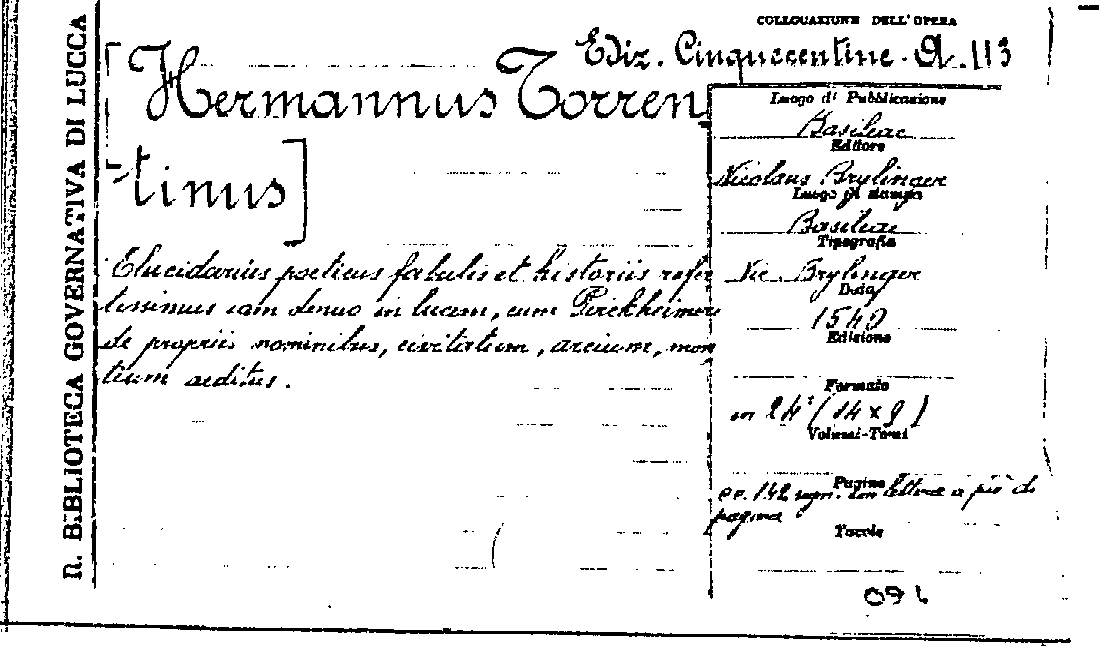 n. BIBLIOTECA GOVERNATIVA DI LUCCA
COLLOCAZIONE DELL'OPERA
Ediz. Cinquecentine. A. 113
[Hermannus Torren
tinus]
Elucidarius poeticus fabulis et historiis refer
tissimus iam denuo in lucem, cum Pirckheimero
de propriis nominibus, civitatum, arcium, mon
tium aeditus.
Luogo di Pubblicazione
Basileae
Editore
Nicolaus Brylinger
Luogo di stampa
Basileae
Tipografia
Nic. Brylinger
Data
1540
Edizione
Formato
in 24° (14 x 9)
Volumi-Tomi
Pagine
cc. 142 segn. con lettere a piè di
pagina
Tavole